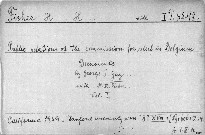 Fisher H. H.
Public relations of the commission for relief in Belgium
Documents
by George I. Gay
with H. H. Fisher
Vol. I
California 1929. Stanford university